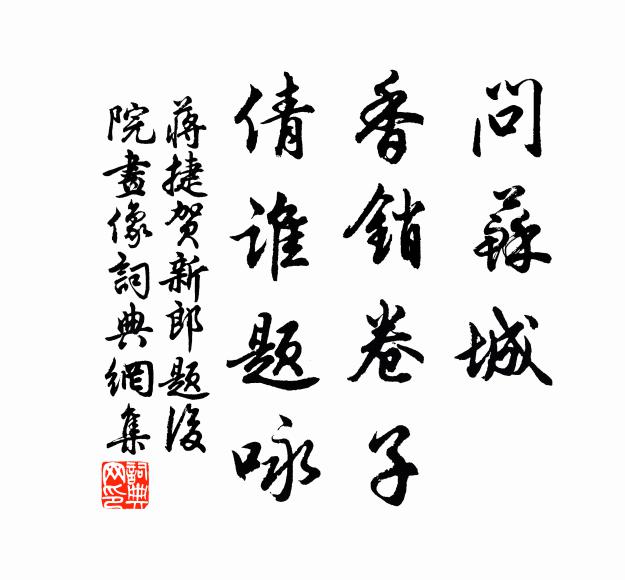 問蘇城
香銷卷子
倩誰題咏
蔣捷賀新郎題後
院畫像詞典網集
詞典网印